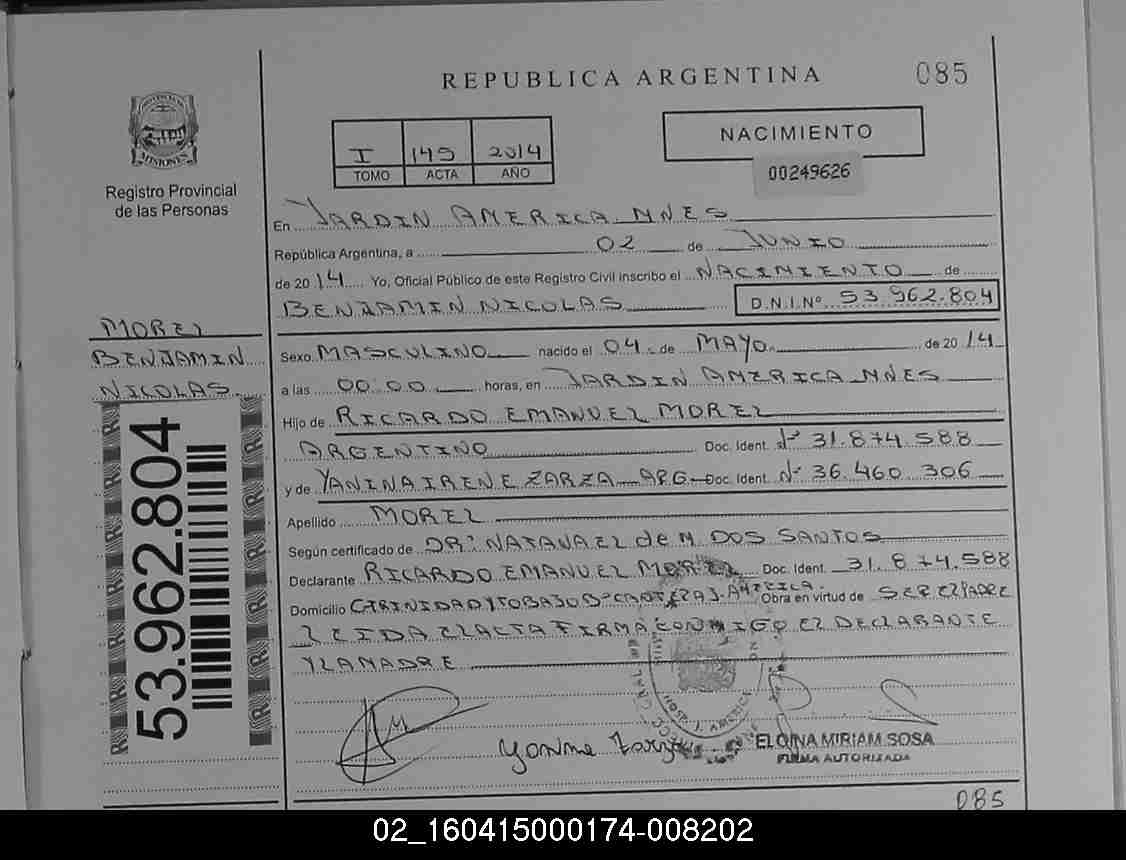 REPUBLICA ARGENTINA
085
I 145 2014
TOMO ACTA AÑO
NACIMIENTO
00249626
PROVINCIA DE
MISIONES
Registro Provincial
de las Personas
En JARDIN AMERICA MNES
República Argentina, a 02 de JUNIO
de 2014 Yo, Oficial Público de este Registro Civil inscribo el NACIMIENTO de
BENJAMIN NICOLAS D.N.I.Nº 53.962.804
MOREL
BENJAMIN
NICOLAS
53.962.804
Sexo MASCULINO nacido el 04 de MAYO de 2014
a las 00:00 horas, en JARDIN AMERICA MNES
Hijo de RICARDO EMANUEL MOREL
ARGENTINO Doc. Ident. Nº 31.874.588
y de YANINA IRENE ZARZA ARG Doc. Ident. Nº 36.460.306
Apellido MOREL
Según certificado de DR: NATANAEL de M DOS SANTOS
Declarante RICARDO EMANUEL MOREL Doc. Ident. 31.874.588
Domicilio Obra en virtud de SER EL PADRE
LEIDA EL ACTA FIRMA CONMIGO EL DECLARANTE
Y LA MADRE
HOSP. J. AMERICA
ELOINA MIRIAM SOSA
FIRMA AUTORIZADA
085
02_160415000174-008202